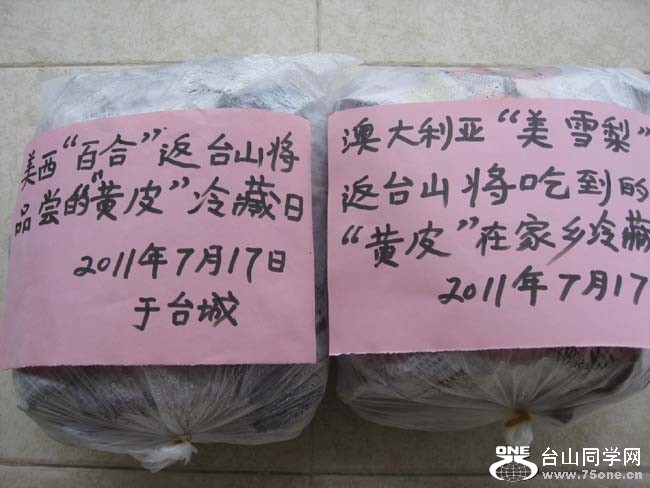 美西“百合”返台山将
品尝的“黄皮”冷藏日
2011年7月17日
于台城
澳大利亚“美雪梨”
返台山将吃到的
“黄皮”在家乡冷藏
2011年7月17
ONE
台山同学网
www.75one.cn